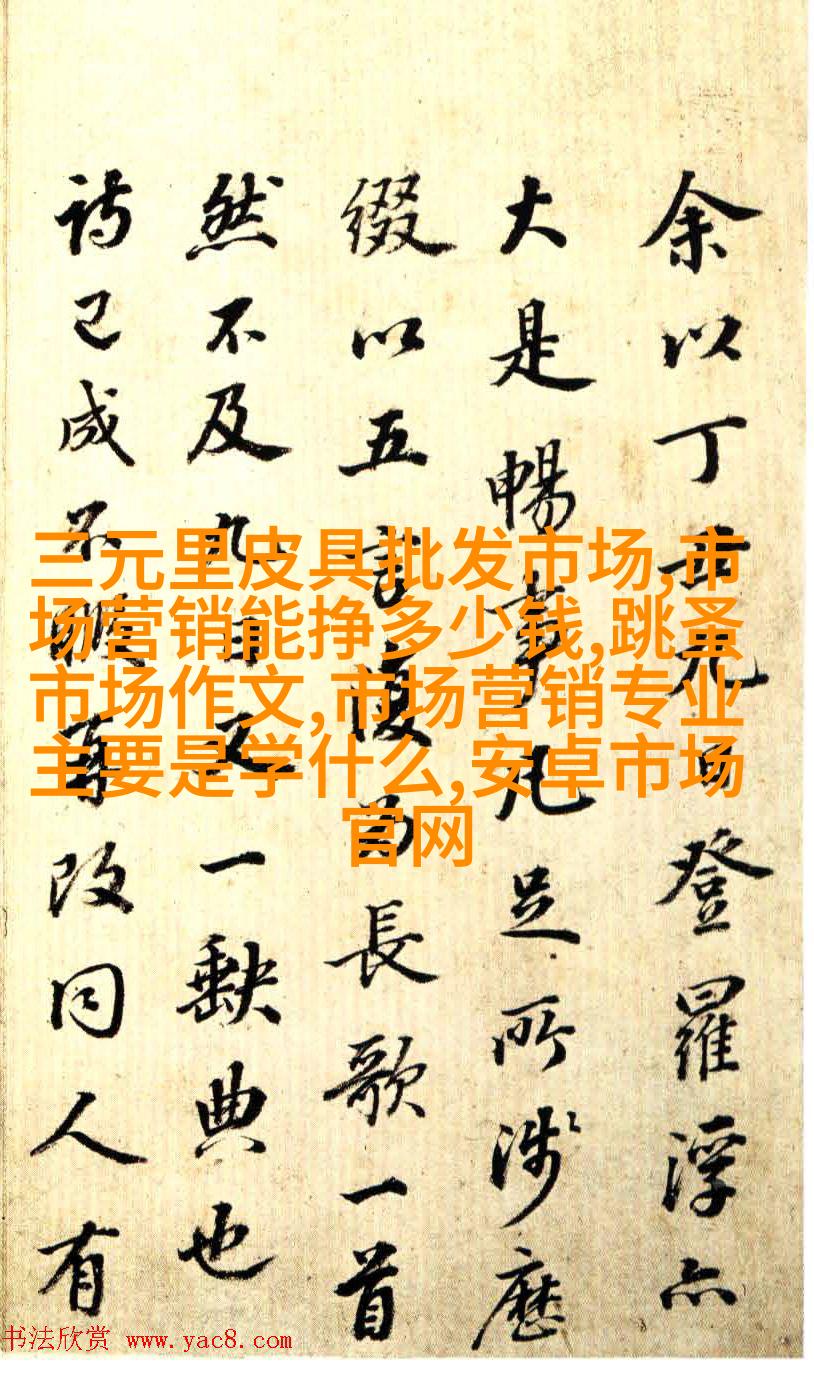 余以丁丑元日登羅浮亦
大是暢事凡足所涉歷
綴以五言復為長歌一首
然不及九日又一缺典也
詩已成不暇再改同人有
三元里皮具批发市场,市
场营销能挣多少钱,跳蚤
市场作文,市场营销专业
主要是学什么,安卓市场
官网
书法欣赏 www.yac8.com